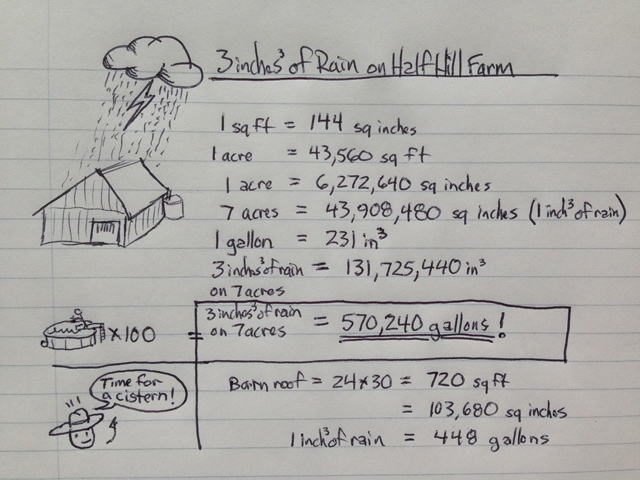 3 inches³ of Rain on Half Hill Farm
1 sq ft = 144 sq inches
1 acre = 43,560 sq ft
1 acre = 6,272,640 sq inches
7 acres = 43,908,480 sq inches (1 inch³ of rain)
1 gallon = 231 in³
3 inches³ of rain = 131,725,440 in³
on 7 acres
x 100 =
3 inches³ of rain
on 7 acres = 570,240 gallons!
Time for
a cistern!
Barn roof = 24x30 = 720 sq ft
= 103,680 sq inches
1 inch³ of rain = 448 gallons